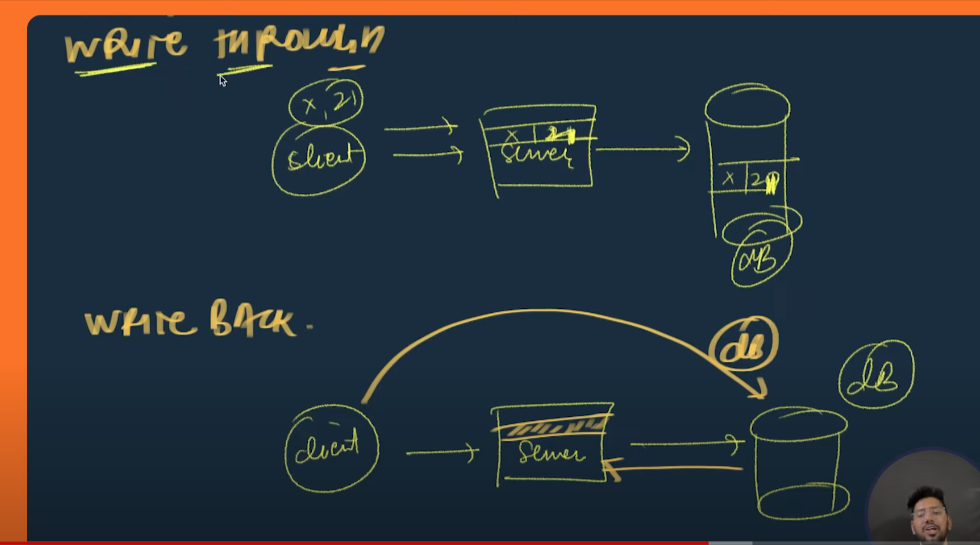 WRITE THROUGH
x, 21
client
x 21
Server
x 21
dB
WRITE BACK.
dB
dB
client
Server